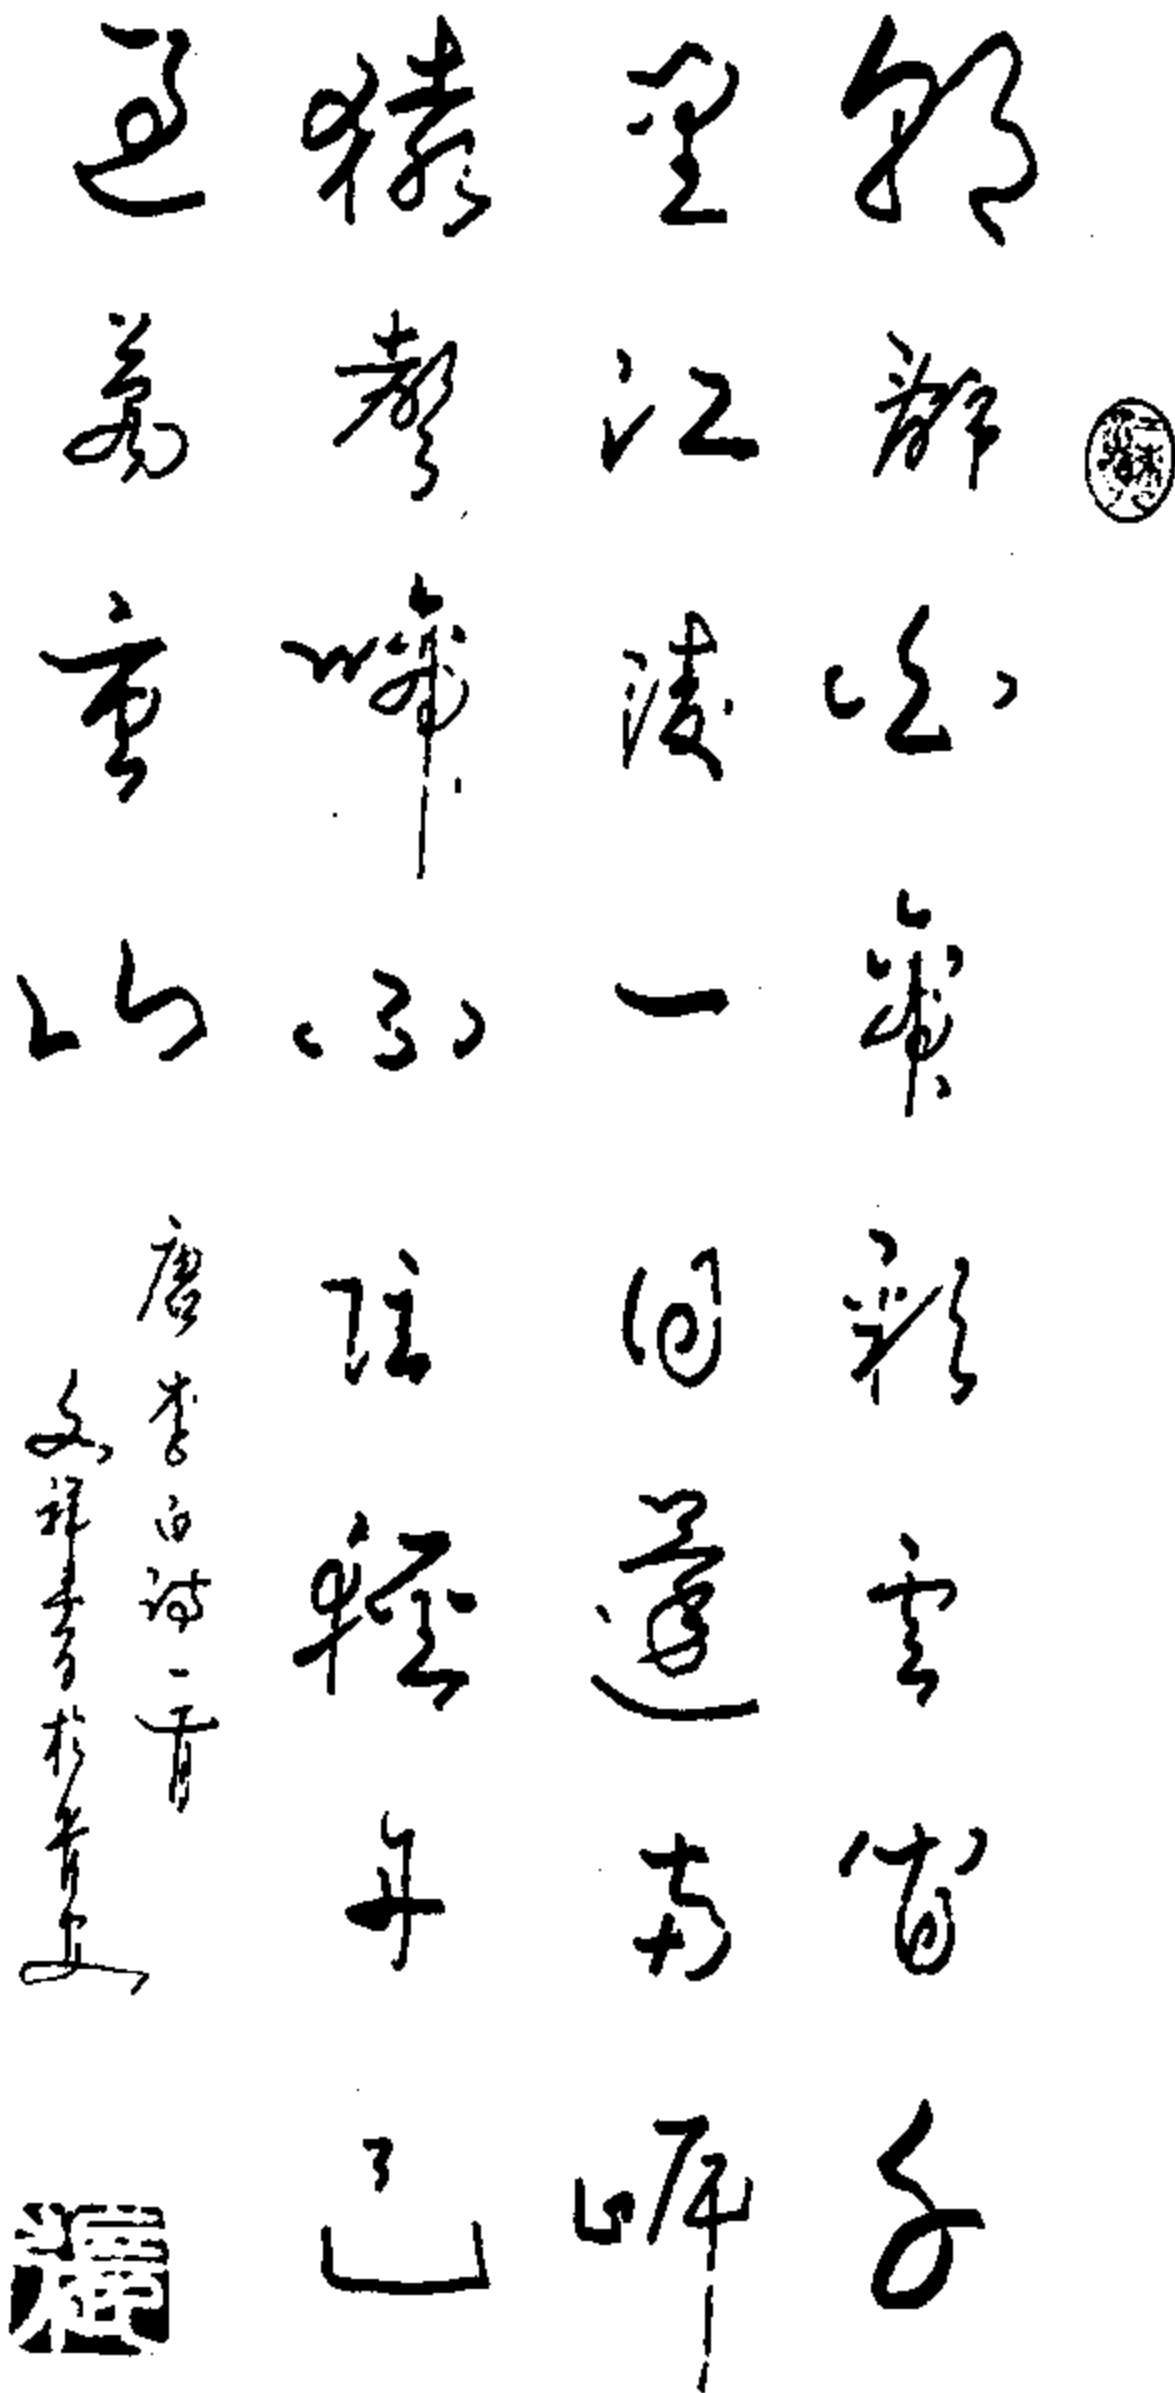 朝辭白帝彩雲間千
里江陵一日還兩岸
猿聲啼不住輕舟已
過萬重山
唐李白詩一首